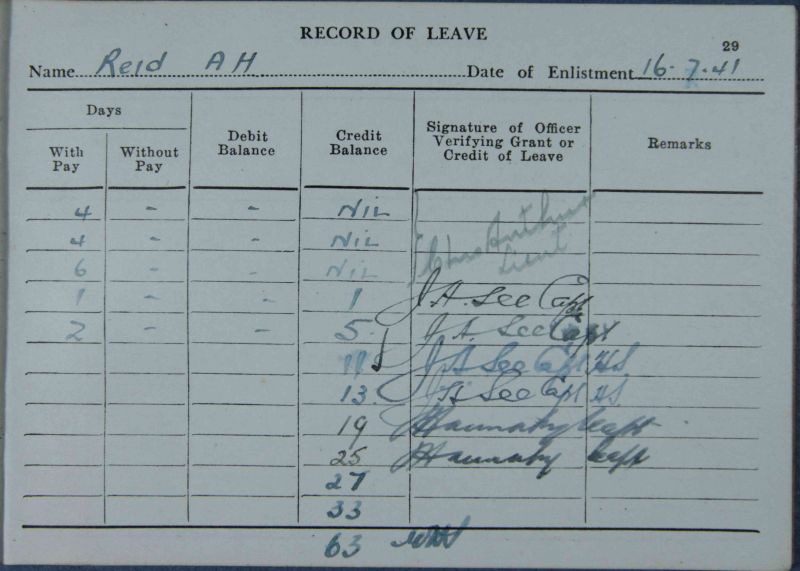 RECORD OF LEAVE
29
Name Reid A H Date of Enlistment 16.7.41
Days
With Pay Without Pay Debit Balance Credit Balance Signature of Officer Verifying Grant or Credit of Leave Remarks
4 - - Nil
4 - - Nil
6 - - Nil Lieut
1 - - 1 J.H. See Capt
2 - - 5 J.H. See Capt
J.H. See Capt
13 J.H. See Capt
19 Capt
25 Capt
27
33
63